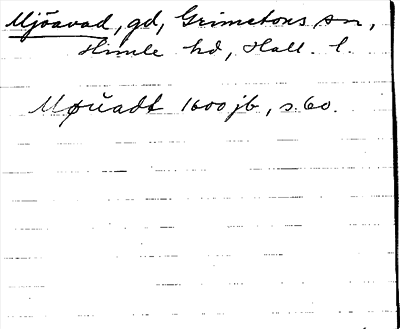 Mjöavad, gd, Grimetons sn,
Himle hd, Hall. l.
Møŭadt 1600 jb, s. 60.